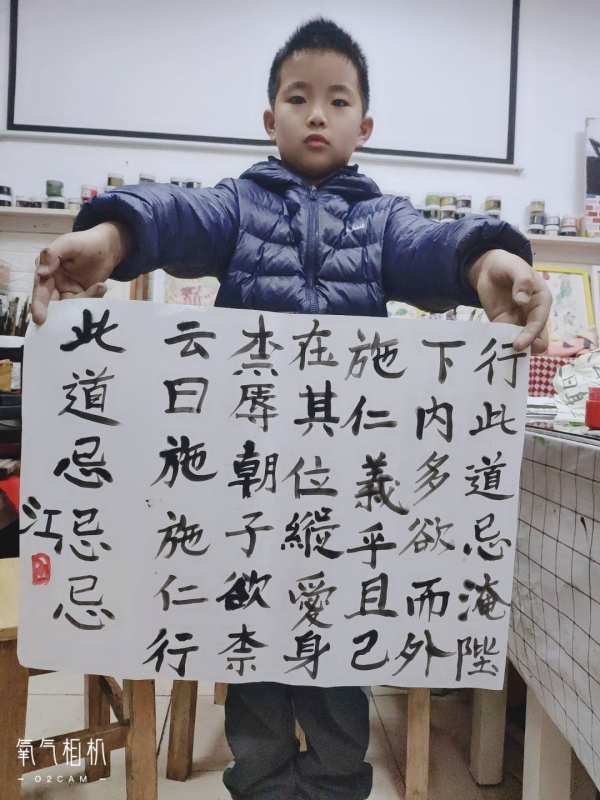 行此道忌淹陛
下内多欲而外
施仁義乎且己
在其位縱愛身
柰辱朝子欲柰
云曰施施仁行
此道忌忌忌
江
氧气相机
— O2CAM —